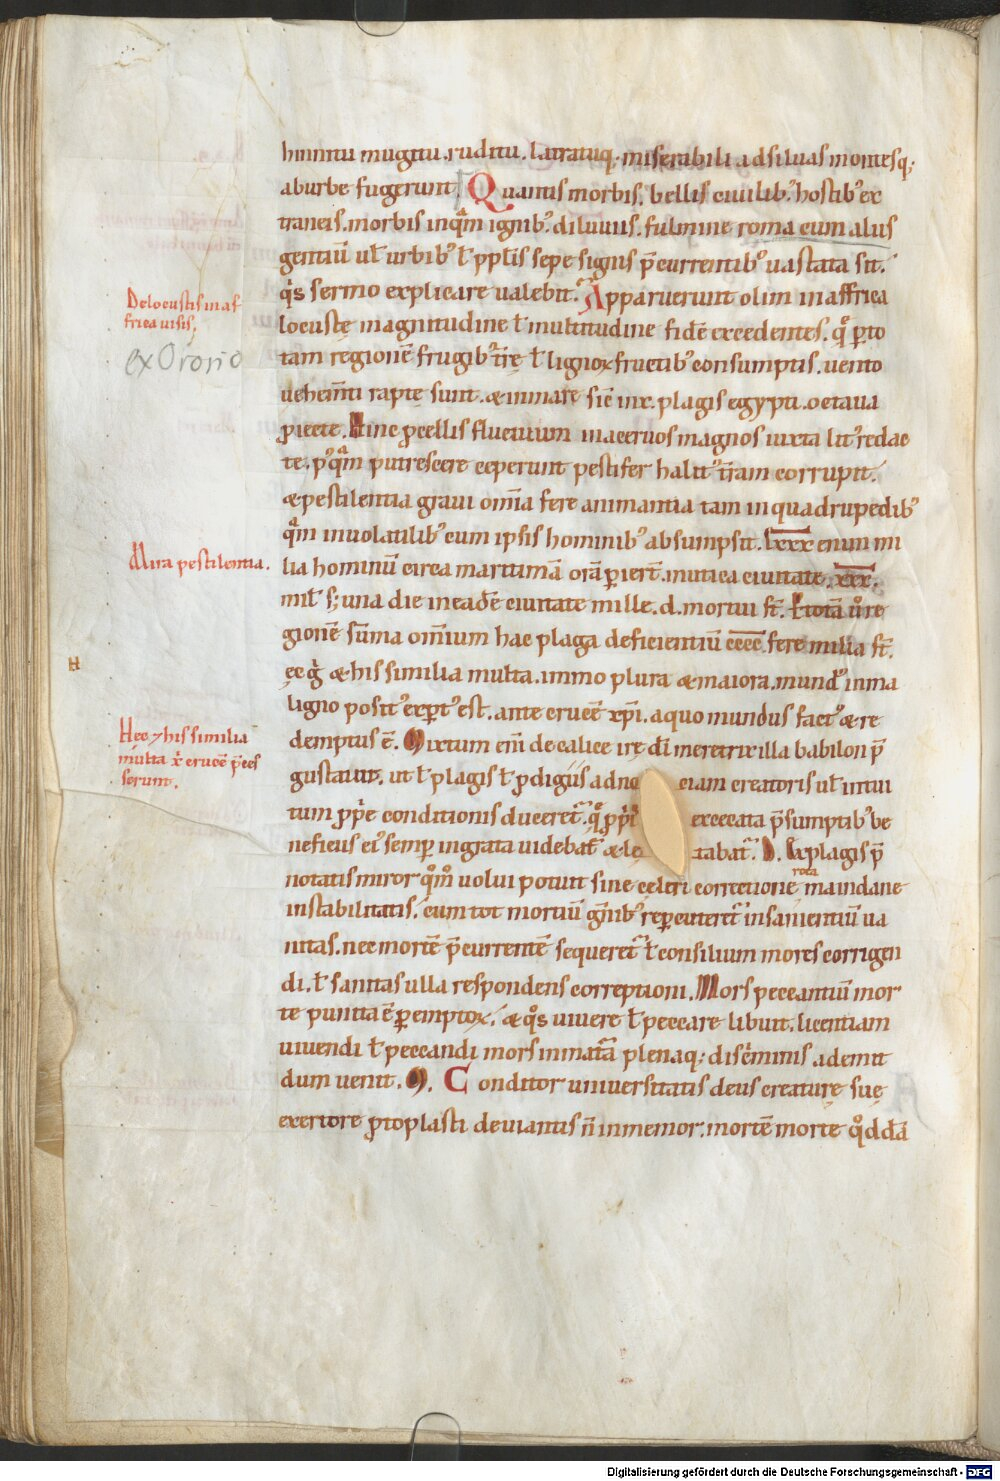 hinnitu mugitu. ruditu. latratuq; miserabili ad siluas montesq;
ab urbe fugerunt. Quantis morbis. bellis ciuilib; hostib; ex
traneis. morbis inqᵃm ignib; diluuiis. fulmine roma cum aliis
gentiū ul urbib; ł ppłis sepe signis p̄currentib; uastata sit.
qⁱs sermo explicare ualebit. Apparuerunt olim in affrica
locustę magnitudine ł multitudine fidē excedentes. qᵉ p̱ to
De locustis in af
frica uisis,
ex Orosio
tam regionē frugib; tr̄ę ł lignoꝝ fructib; consumptis. uento
uehem̄ti raptę sunt. & in mare sic̄ in x. plagis egypti. octaua
p̱iecte. Hinc p̱cellis fluctuum in aceruos magnos iuxta lit; redac
te. p;qᵃm putrescere ceperunt pestifer halit; tr̄am corrupit.
& pestilentia graui om̄ia fere animantia tam in quadrupedib;
qᵃm in uolatilib; cum ipsis hominib; absumpsit. lxxx enim mi
Mira pestilentia.
lia hominū circa maritimā orā p̱iert̄. in utica ciuitate. xxx.
mił s; una die in eadē ciuitate mille. d. mortui st̄. ł totā uᵒ re
gionē sūma om̄ium hac plaga deficientiū cccc fere milia st̄.
ęc gⁱ & his similia multa. immo plura & maiora. mund; in ma
ligno posit; exp̱t; est. ante crucē xp̄i. a quo mundus fact; & re
Hec & his similia
multa xⁱ crucē p̄ces
serunt.
demptus ē. Mixtum em̄ de calice irę dī meretrix illa babilon p̄
gustauit. ut ł plagis ł p̱digiis ad no ciam creatoris ul intui
tum pp̱e conditionis duceret᷑. qᵉ pp̱i excecata p̄sumptib; be
neficus ei; semp̱ ingrata uidebat᷑ & le tabat᷑. D. Ex plagis p̄
notatis miror qᵒm uolui potuit sine celeri correctione rota mundane
instabilitatis. cum tot mortiū gn̄ib; rep̱cuteret᷑ insanientiū ua
nitas. nec mortē p̄currentē sequeret᷑ ł consilium mores corrigen
di. ł sanitas ulla respondens correptioni. Mors peccantiū mor
te punita ē p̱emptoꝝ. & qᵒs uiuere ł peccare libuit. licentiam
uiuendi ł peccandi mors inmat̄a plenaq; discⁱminis ademit
dum uenit. M. Conditor uniuersitatis deus creaturę suę
exeriore p̱toplasti deuiantis n̄ inmemor. mortē morte qᵒddā